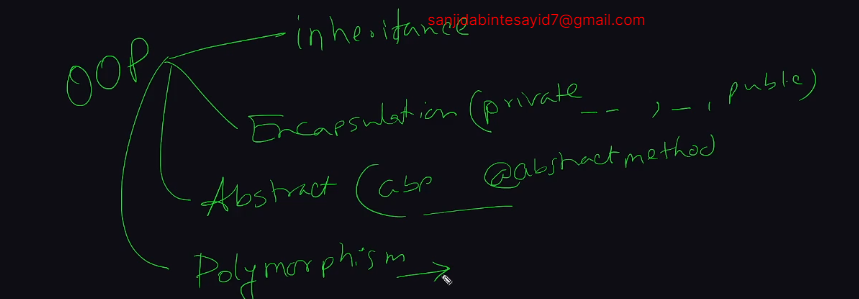 sanjidabintesayid7@gmail.com
OOP
inheritance
Encapsulation (private _ _ , _ , public)
Abstract (abp @abstractmethod
Polymorphism →